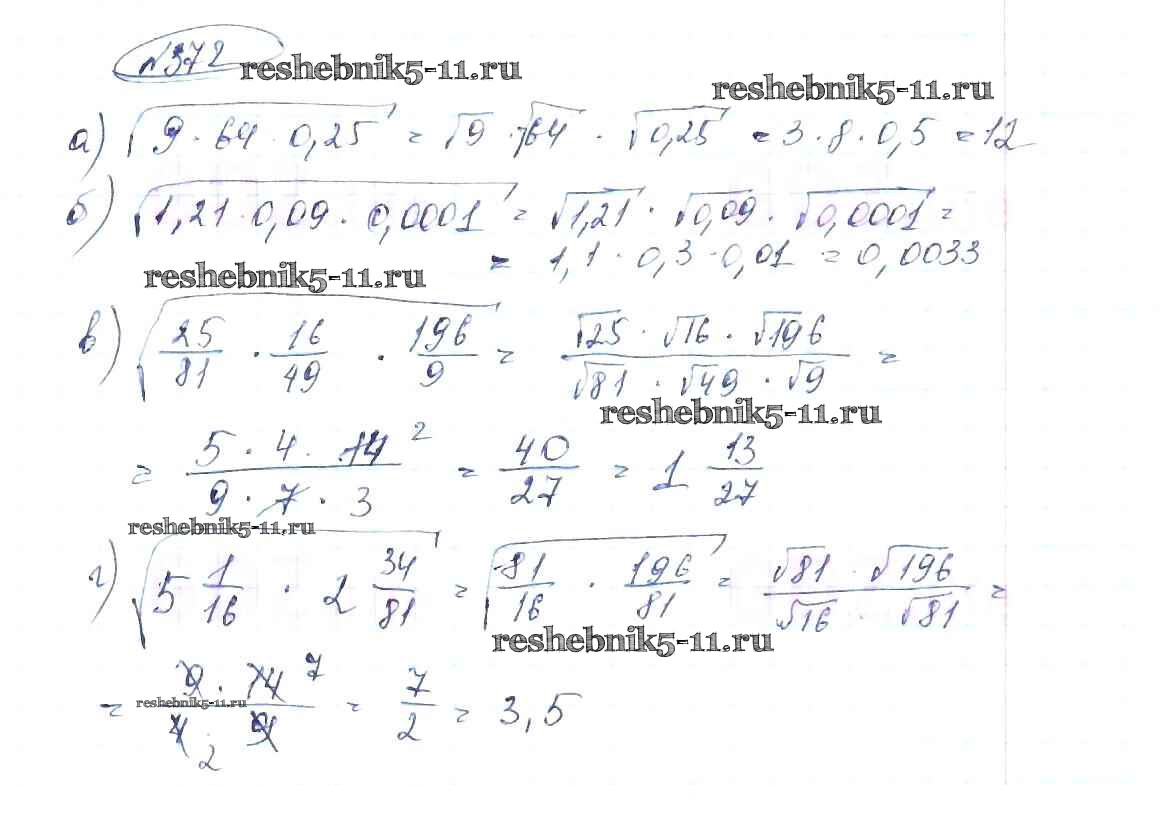 №372 reshebnik5-11.ru
reshebnik5-11.ru
а) √(9 · 64 · 0,25) = √9 · √64 · √0,25 = 3 · 8 · 0,5 = 12
б) √(1,21 · 0,09 · 0,0001) = √1,21 · √0,09 · √0,0001 =
= 1,1 · 0,3 · 0,01 = 0,0033
reshebnik5-11.ru
в) √(25/81 · 16/49 · 196/9) = (√25 · √16 · √196)/(√81 · √49 · √9) =
reshebnik5-11.ru
= (5 · 4 · 14 2)/(9 · 7 · 3) = 40/27 = 1 13/27
reshebnik5-11.ru
г) √(5 1/16 · 2 34/81) = √(81/16 · 196/81) = (√81 · √196)/(√16 · √81) =
reshebnik5-11.ru
= (9 · 14 7)/(4 2 · 9) = 7/2 = 3,5
reshebnik5-11.ru